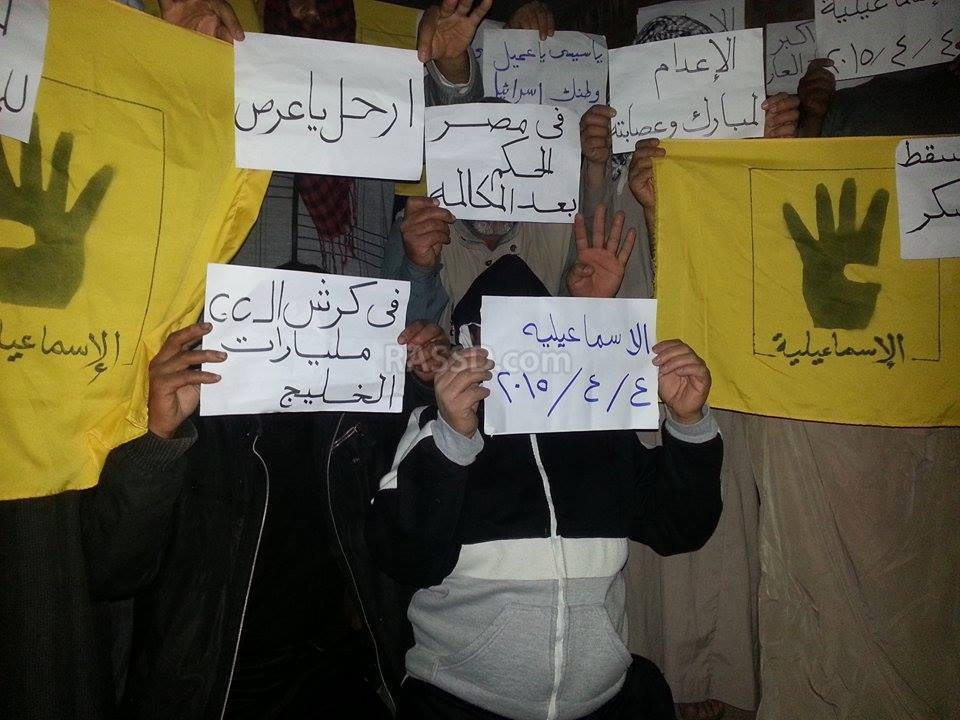 ارحل ياعرص
ياسيسى ياعميل
وطنك إسرائيل
الإعدام
لمبارك وعصابته
اكبر
العار
إسماعيلية
٢٠١٥/٤/٤
فى مصر
الحكم
بعد المكالمه
سقط
سكر
الإسماعيلية
الإسماعيلية
فى كرش الـ CC
مليارات
الخليج
الاسماعيليه
٢٠١٥/٤/٤
RASSD.com